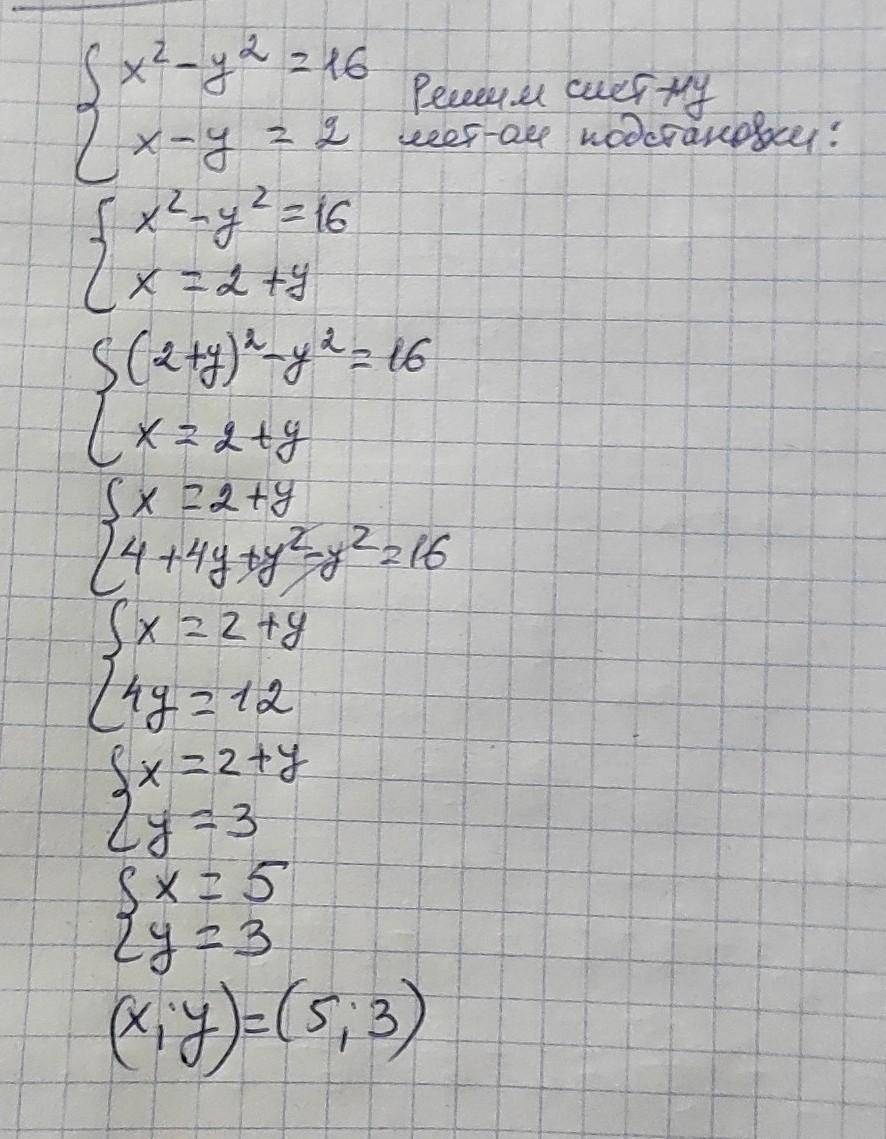 { x² - y² = 16 Решим сист-му
x - y = 2 мет-ом подстановки:
{ x² - y² = 16
x = 2 + y
{ (2+y)² - y² = 16
x = 2 + y
{ x = 2 + y
4 + 4y + y² - y² = 16
{ x = 2 + y
4y = 12
{ x = 2 + y
y = 3
{ x = 5
y = 3
(x; y) = (5; 3)